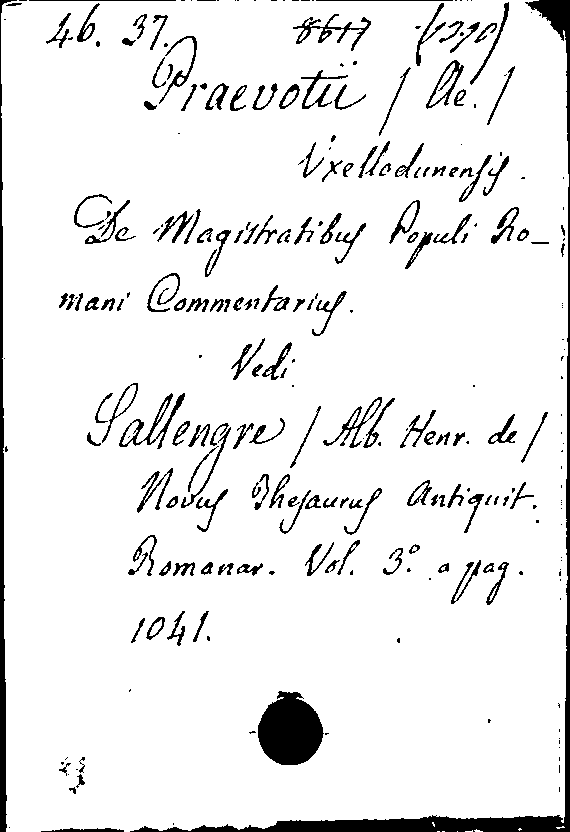 46. 37. 8617 (1370)
Praevotii / Ae. /
Vxellodunensis.
De Magistratibus Populi Ro-
mani Commentarius.
Vedi
Sallengre / Alb. Henr. de /
Novus Thesaurus Antiquit.
Romanar. Vol. 3.º a pag.
1041.